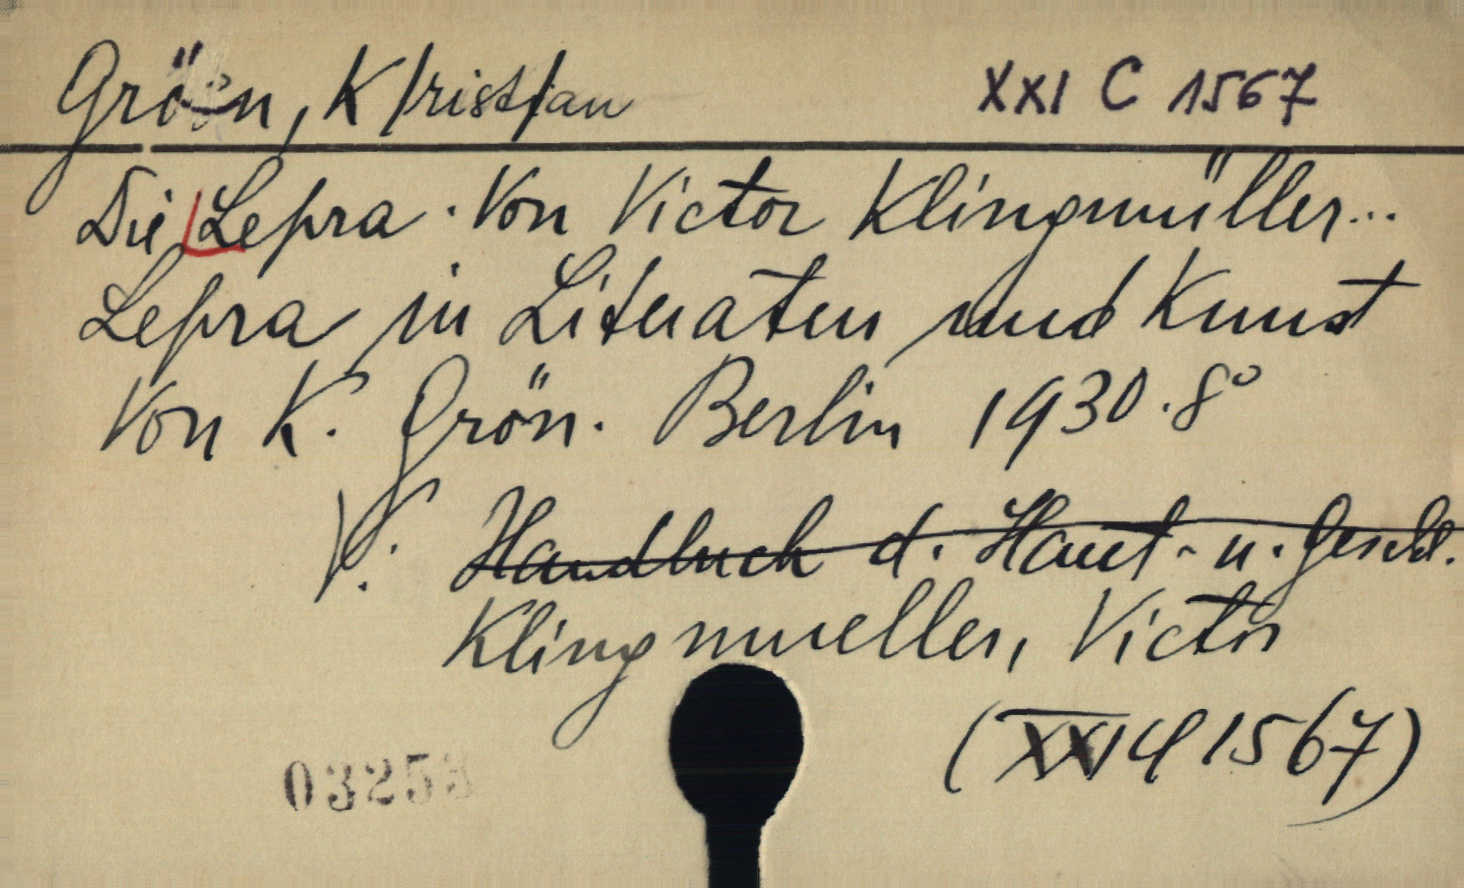 Grön, Kristian XXI C 1567
Die Lepra. Von Victor Klingmüller...
Lepra in Literatur und Kunst
Von K. Grön. Berlin 1930. 8°
V: Handbuch d. Haut- u. Geschl.
Klingmueller, Victor
(XXI C 1567)
03253